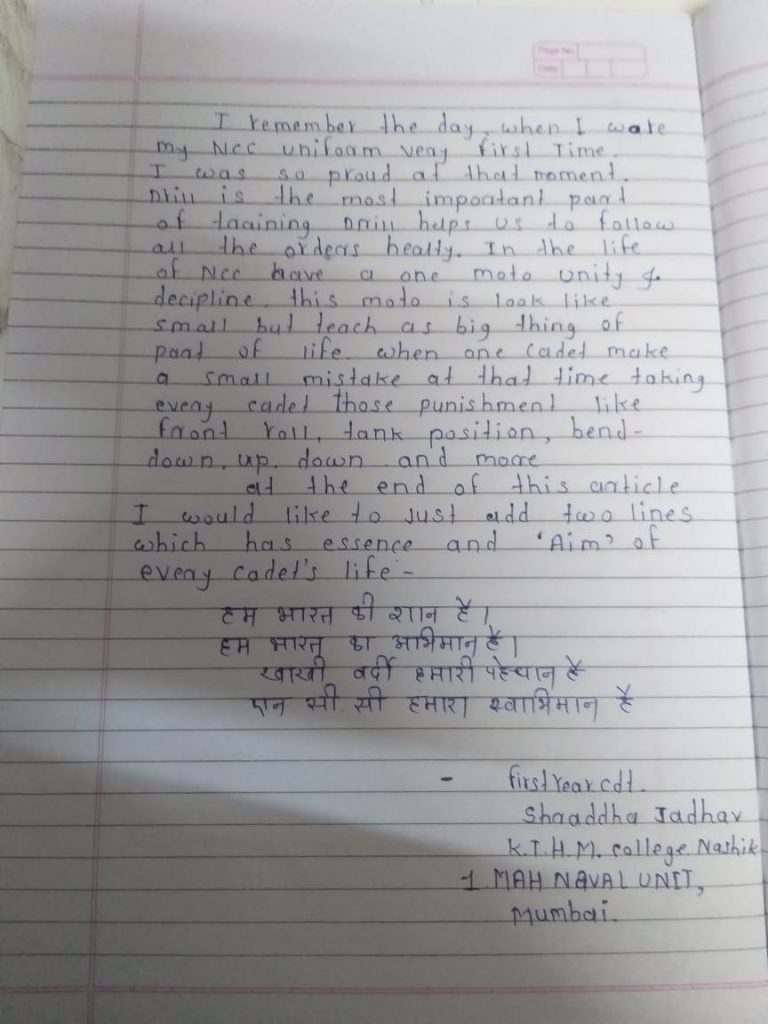 Page No.
Date
I remember the day, when I wore
my NCC uniform very first Time.
I was so proud at that moment.
Drill is the most important part
of training Drill helps us to follow
all the orders healty. In the life
of NCC have a one moto unity &
decipline. this moto is look like
small but teach as big thing of
part of life. when one cadet make
a small mistake at that time taking
every cadet those punishment like
front roll, tank position, bend-
down. up. down and more
at the end of this article
I would like to Just add two lines
which has essence and 'Aim' of
every cadet's life -
हम भारत की शान है।
हम भारत का अभिमान है।
खाखी वर्दी हमारी पहेचान है
एन सी. सी हमारा स्वाभिमान है
- first Year cdt.
Shraddha Jadhav
K.T.H.M. college. Nashik
1 MAH NAVAL UNIT,
Mumbai.